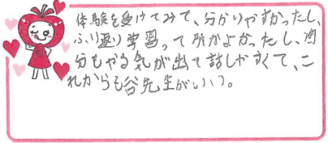 体験を受けてみて、分かりやすかったし、
ふり返り学習って所がよかったし、自
分もやる気が出て話しやすくて、こ
れからも谷先生がいい。